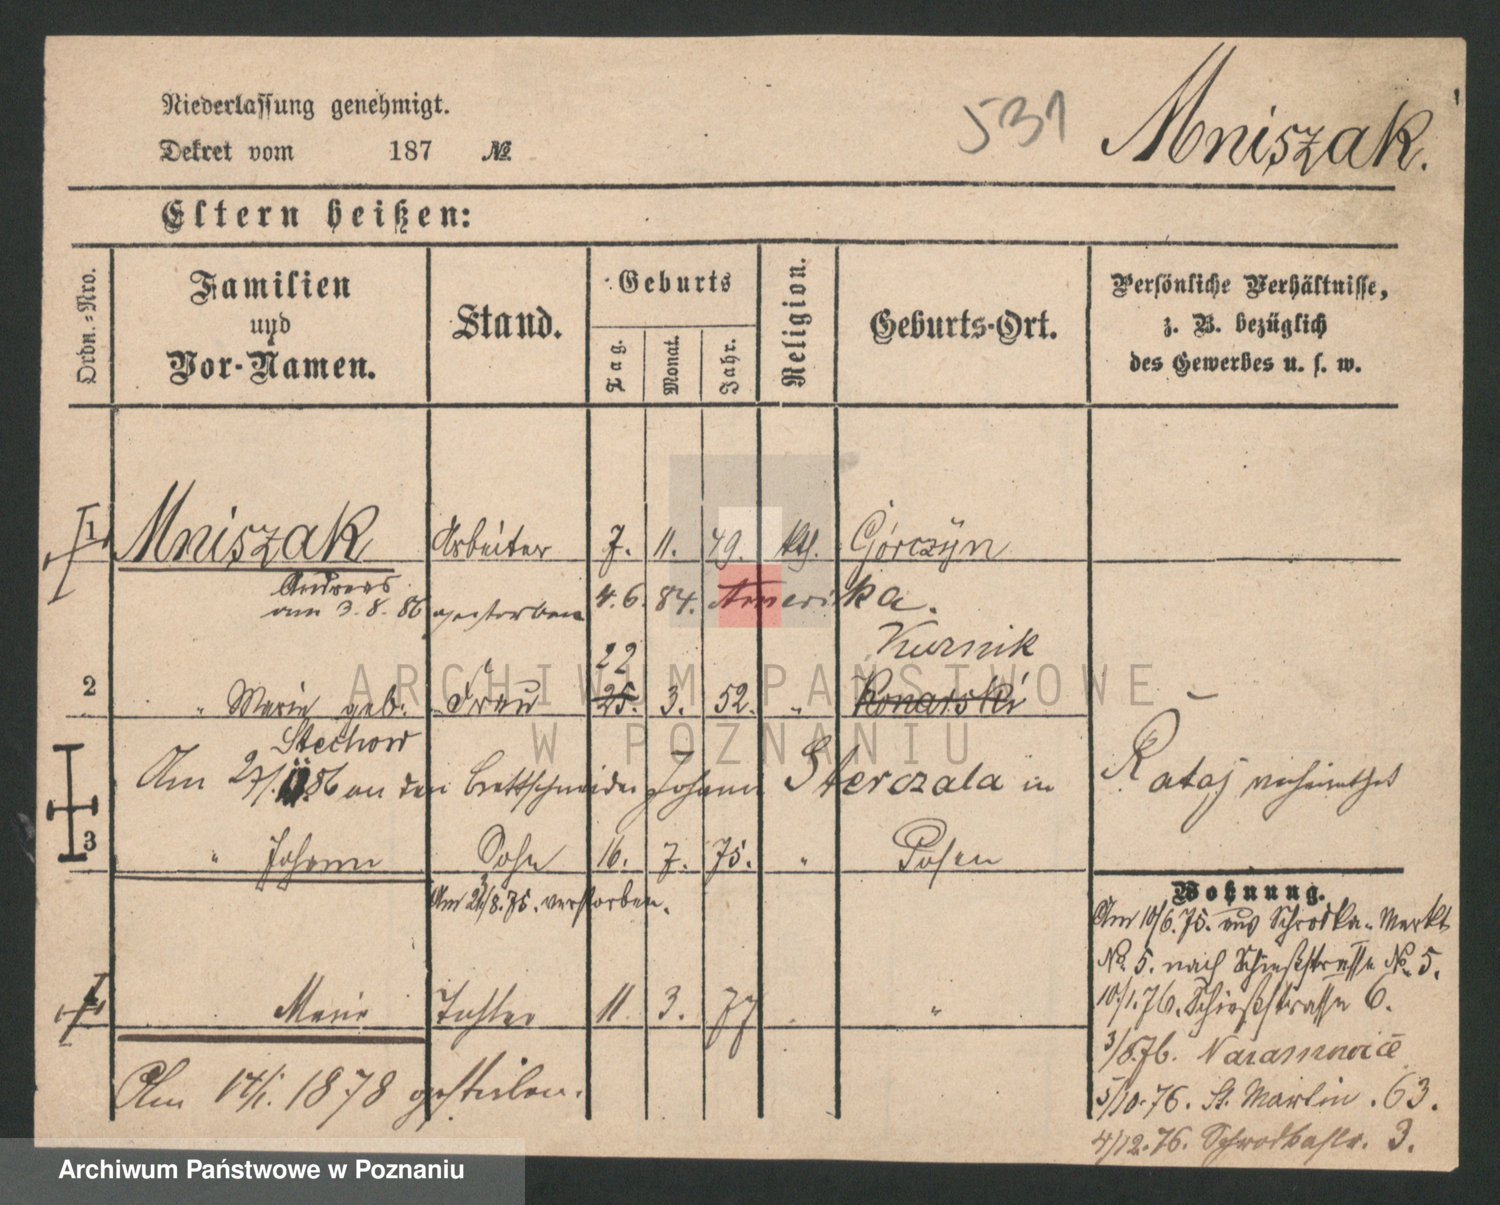 Niederlassung genehmigt.
Dekret vom 187 №
531
Mniszak.
Eltern heißen:
Ordn.-Nro.
Familien
und
Vor-Namen.
Stand.
Geburts
Tag.
Monat.
Jahr.
Religion.
Geburts-Ort.
Persönliche Verhältnisse,
z. B. bezüglich
des Gewerbes u. s. w.
1 Mniszak Arbeiter 7. 11. 49. kth. Górczyn
Andreas
am 3.8.86 gestorben 4.6.84. Amerika.
22 Kurnik
2 " Marie geb. Frau 25. 3. 52. " Konarski
Stechow
Am 27/.86 an den Brettschneider Johann Sterczala in Rataj verheirathet
3 " Johann Sohn 16. 7. 75. " Posen
Am 2/8.75. verstorben.
Marie Tochter 11. 3. 77 "
Am 17/1. 1878 gestorben.
Wohnung.
Am 10/6.75. aus Schrodka-Markt
№ 5. nach Schießstrasse № 5.
10/1.76. Schießstrasse 6.
3/6.76. Naramowice
5/10.76. St. Martin. 63.
4/12.76. Schrodkastr. 3.
ARCHIWUM PAŃSTWOWE
W POZNANIU
Archiwum Państwowe w Poznaniu